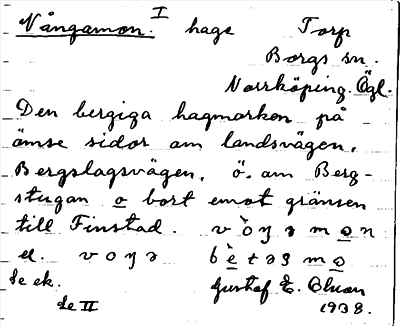 Vångamon. I hage Torp
Borgs sn.
Norrköping. Ögl.
Den bergiga hagmarken på
ömse sidor om landsvägen,
Bergslagsvägen, ö. om Berg-
stugan o bort emot gränsen
till Finstad. v ò ŋ ə m o n
el. v o ŋ ə b è t ə s m o
Se ek. Gustaf E.
Se II 1938.